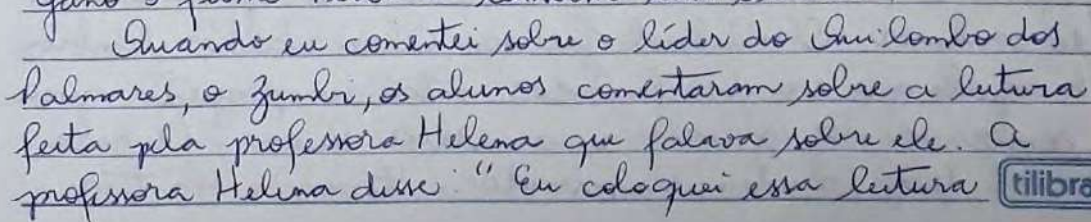 Quando eu comentei sobre o líder do Quilombo dos
Palmares, o Zumbi, os alunos comentaram sobre a leitura
feita pela professora Helena que falava sobre ele. A
professora Helena disse: "Eu coloquei essa leitura tilibra